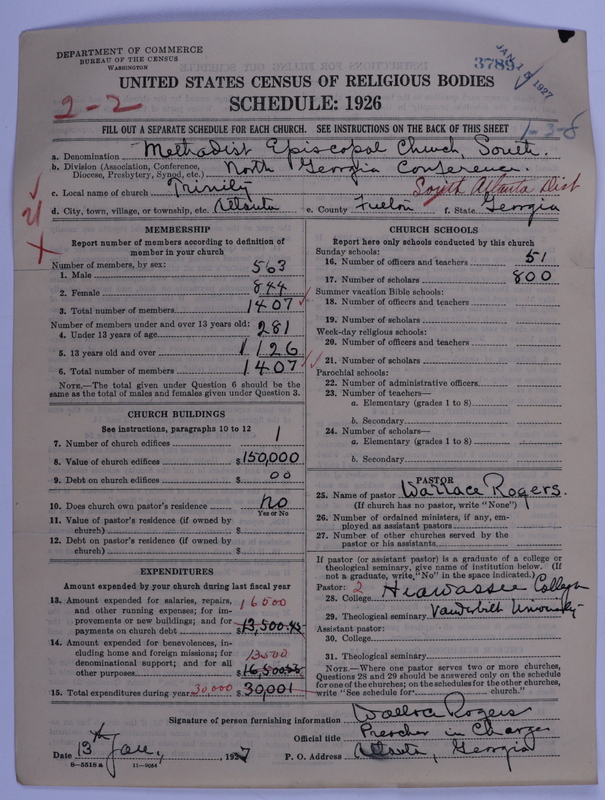 DEPARTMENT OF COMMERCE
BUREAU OF THE CENSUS
WASHINGTON
37891
JAN 1927
UNITED STATES CENSUS OF RELIGIOUS BODIES
SCHEDULE: 1926
2-2
FILL OUT A SEPARATE SCHEDULE FOR EACH CHURCH. SEE INSTRUCTIONS ON THE BACK OF THIS SHEET
1-3-8
a. Denomination Methodist Episcopal Church, South.
b. Division (Association, Conference, Diocese, Presbytery, Synod, etc.) North Georgia Conference.
c. Local name of church Trinity South Atlanta Dist
d. City, town, village, or township, etc. Atlanta e. County Fulon f. State Georgia
MEMBERSHIP
Report number of members according to definition of member in your church
Number of members, by sex:
1. Male 563
2. Female 844
3. Total number of members 1407
Number of members under and over 13 years old:
4. Under 13 years of age 281
5. 13 years old and over 1126
6. Total number of members 1407
NOTE.—The total given under Question 6 should be
same as the total of males and females given under Question 3.
CHURCH BUILDINGS
See instructions, paragraphs 10 to 12
7. Number of church edifices 1
8. Value of church edifices $150,000
9. Debt on church edifices $ 00
10. Does church own pastor's residence no
Yes or No
11. Value of pastor's residence (if owned by
church) $
12. Debt on pastor's residence (if owned by
church) $
EXPENDITURES
Amount expended by your church during last fiscal year
13. Amount expended for salaries, repairs,
and other running expenses; for im-
provements or new buildings; and for
payments on church debt 16500 $13,500.45
14. Amount expended for benevolences, in-
cluding home and foreign missions; for
denominational support; and for all
other purposes 13500 $16,500.55
15. Total expenditures during year 30,000 $30,001
CHURCH SCHOOLS
Report here only schools conducted by this church
Sunday schools:
16. Number of officers and teachers 51
17. Number of scholars 800
Summer vacation Bible schools:
18. Number of officers and teachers
19. Number of scholars
Week-day religious schools:
20. Number of officers and teachers
21. Number of scholars
Parochial schools:
22. Number of administrative officers
23. Number of teachers—
a. Elementary (grades 1 to 8)
b. Secondary
24. Number of scholars—
a. Elementary (grades 1 to 8)
b. Secondary
PASTOR
25. Name of pastor Wallace Rogers.
(If church has no pastor, write "None")
26. Number of ordained ministers, if any, em-
ployed as assistant pastors
27. Number of other churches served by the
pastor or his assistants
If pastor (or assistant pastor) is a graduate of a college or
theological seminary, give name of institution below. (If
not a graduate, write "No" in the space indicated.)
Pastor: 2
28. College Hiawassee College
29. Theological seminary Vanderbilt University
Assistant pastor:
30. College
31. Theological seminary
NOTE.—Where one pastor serves two or more churches,
Questions 28 and 29 should be answered only on the schedule
for one of the churches; on the schedules for the other churches,
write "See schedule for church."
Signature of person furnishing information Wallace Rogers
Official title Preacher in Charge
Date 13th Jan., 1927 P. O. Address Atlanta, Georgia
8-5518 a 11-9054